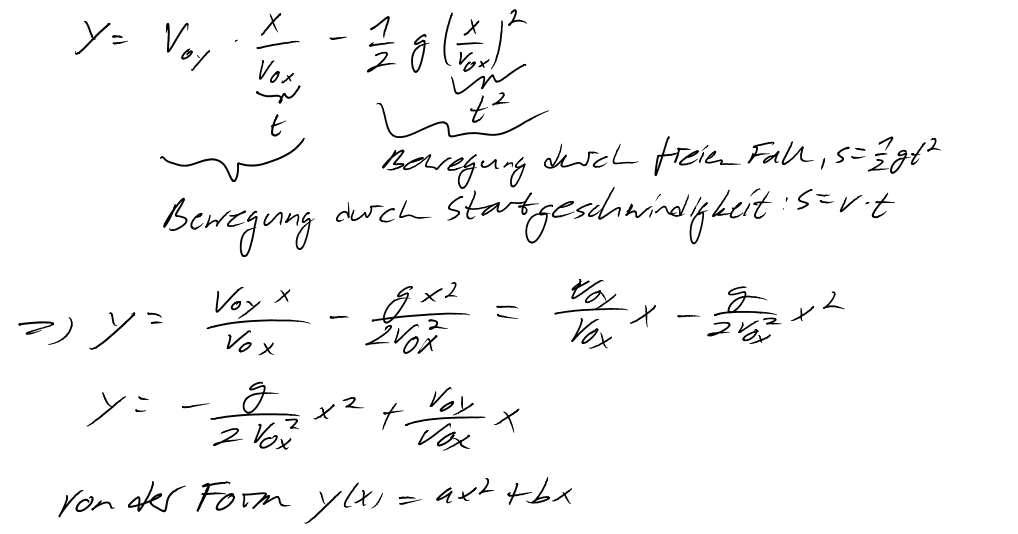 y = v₀y · x/v₀x - 1/2 g (x/v₀x)²
t
t²
Bewegung durch freien Fall, s = 1/2 gt²
Bewegung durch Startgeschwindigkeit: s = v · t
=> y = v₀y x / v₀x - g x² / 2v₀x² = v₀y/v₀x x - g/2v₀x² x²
y = - g/2v₀x² x² + v₀y/v₀x x
von der Form y(x) = ax² + bx